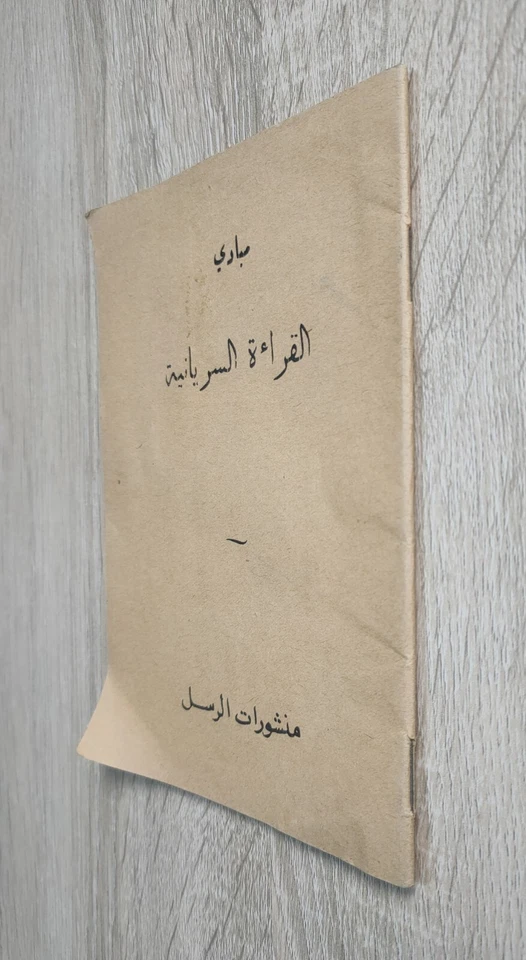 مبادي
القراءة السريانية
منشورات الرسل